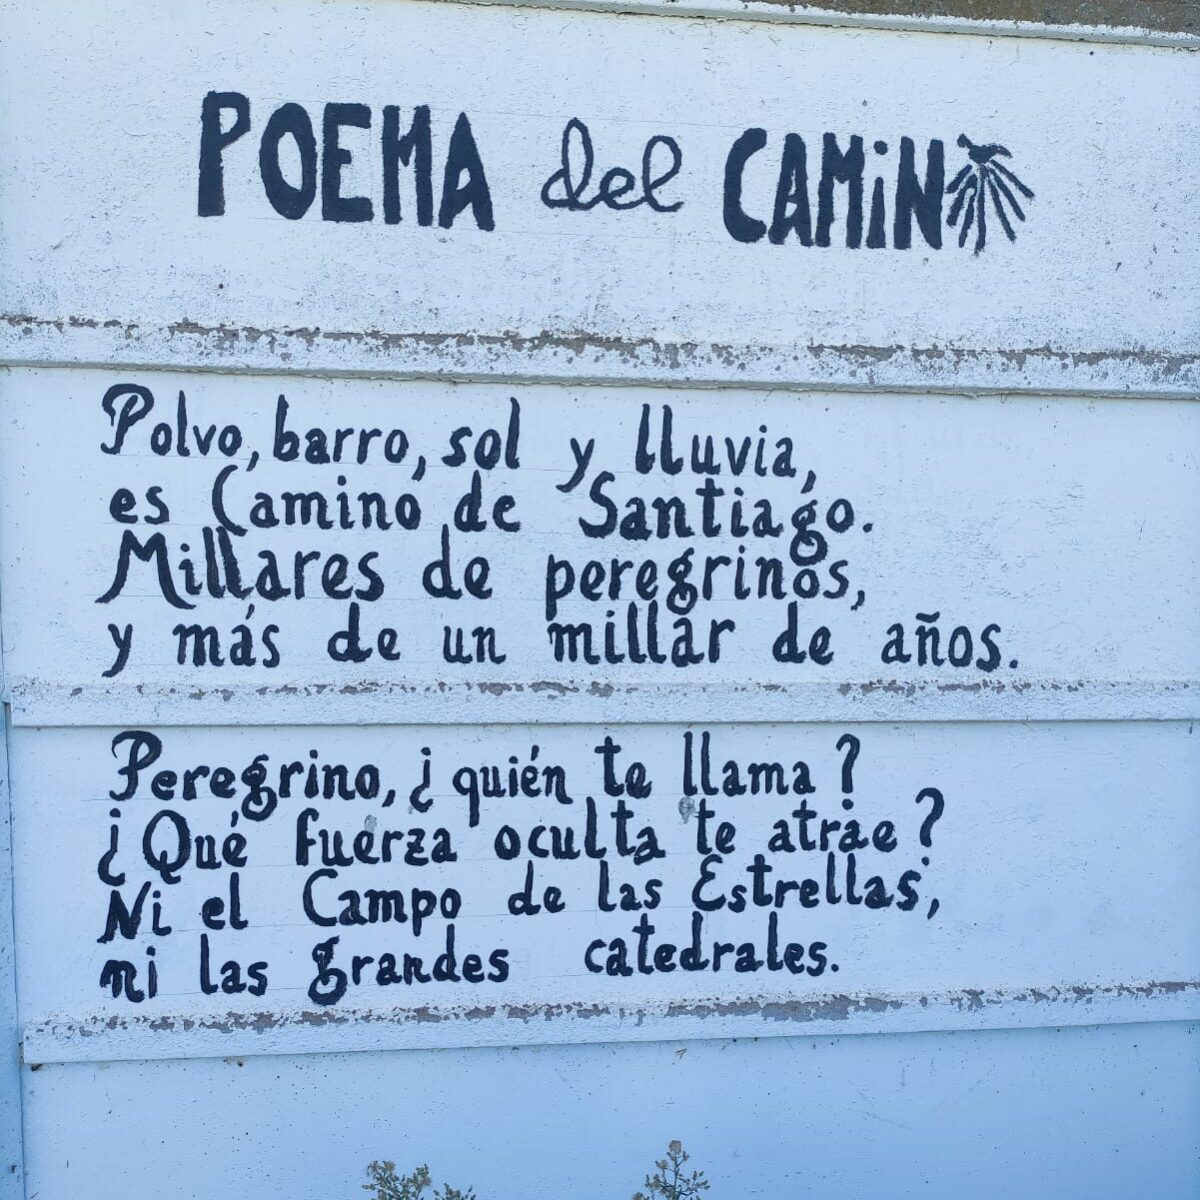 POEMA del CAMiNO
Polvo, barro, sol y lluvia,
es Camino de Santiago.
Millares de peregrinos,
y más de un millar de años.
Peregrino, ¿quién te llama?
¿Qué fuerza oculta te atrae?
Ni el Campo de las Estrellas,
ni las grandes catedrales.